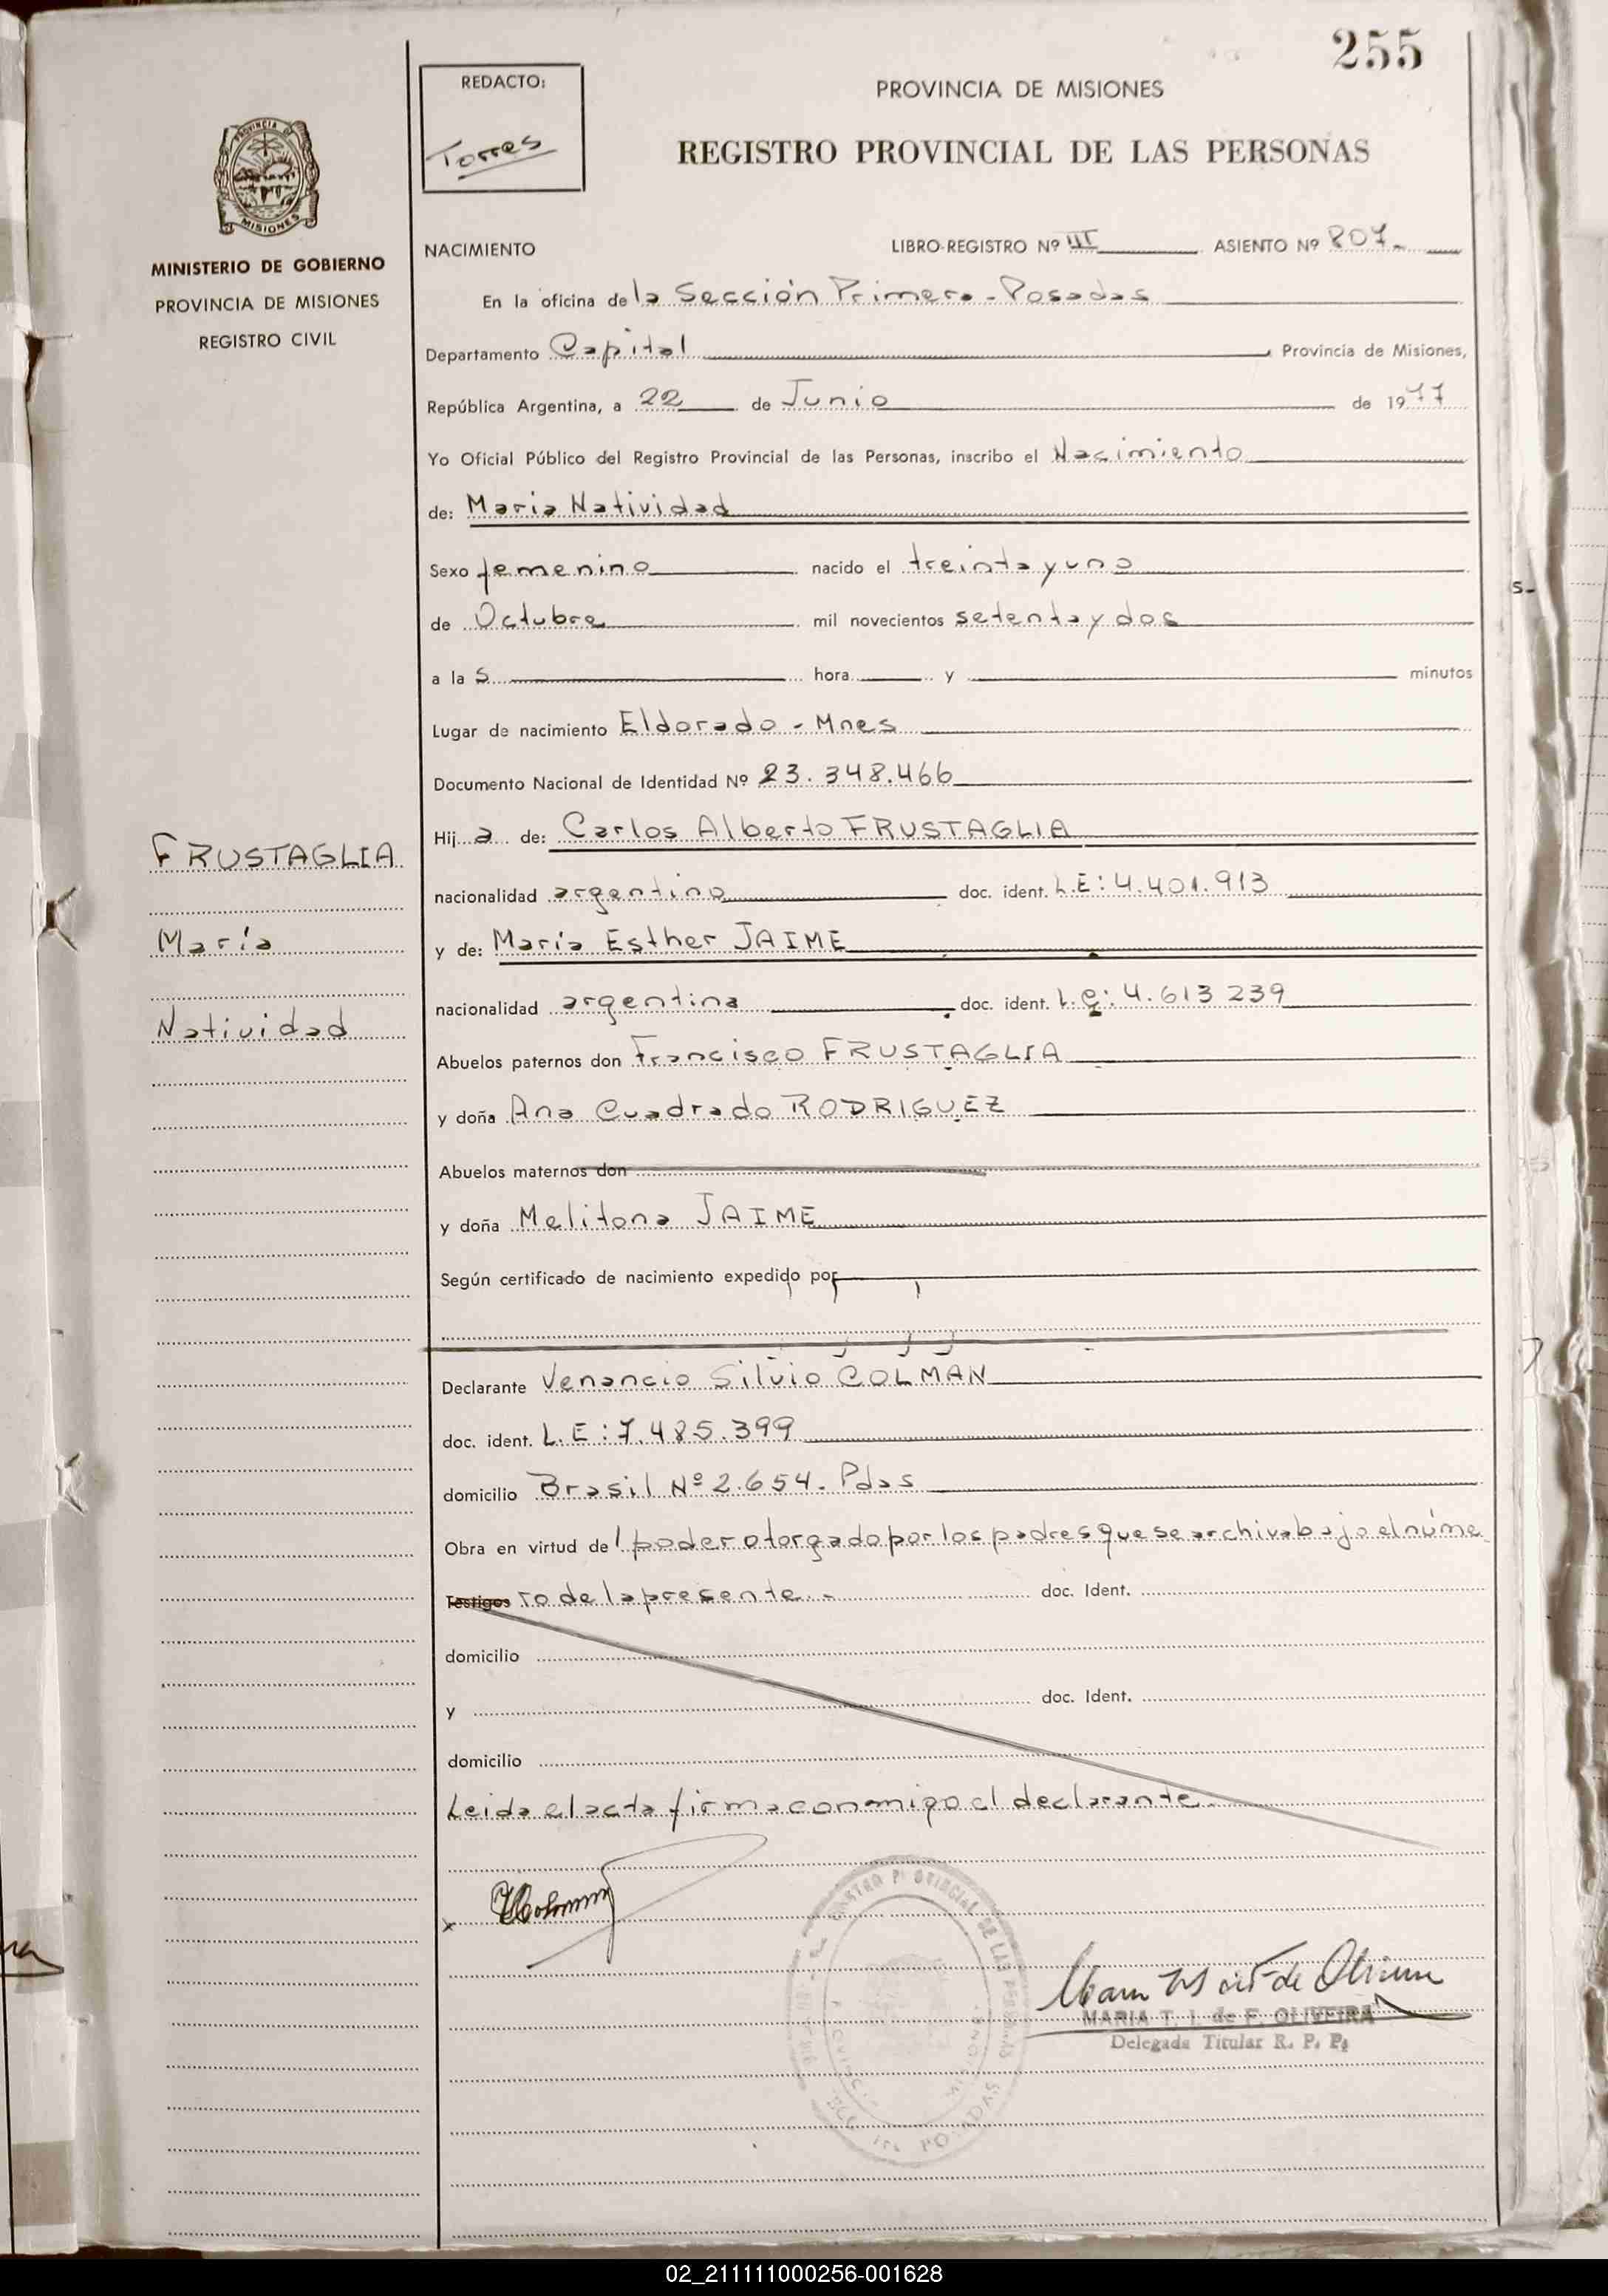 255
REDACTO:
Torres
PROVINCIA DE MISIONES
REGISTRO PROVINCIAL DE LAS PERSONAS
PROVINCIA DE
MISIONES
MINISTERIO DE GOBIERNO
PROVINCIA DE MISIONES
REGISTRO CIVIL
NACIMIENTO LIBRO-REGISTRO Nº III ASIENTO Nº 807.-
En la oficina de la Sección Primera - Posadas
Departamento Capital Provincia de Misiones,
República Argentina, a 22 de Junio de 1977
Yo Oficial Público del Registro Provincial de las Personas, inscribo el Nacimiento
de: Maria Natividad
Sexo femenino nacido el treinta y uno
de Octubre mil novecientos setenta y dos
a la s hora y minutos
Lugar de nacimiento Eldorado - Mnes
Documento Nacional de Identidad Nº 23.348.466
Hij a de: Carlos Alberto FRUSTAGLIA
FRUSTAGLIA
nacionalidad argentino doc. ident. L.E: 4.401.913
María
y de: María Esther JAIME
nacionalidad argentina doc. ident. L.C: 4.613 239
Natividad
Abuelos paternos don Francisco FRUSTAGLIA
y doña Ana Cuadrado RODRIGUEZ
Abuelos maternos don
y doña Melitona JAIME
Según certificado de nacimiento expedido por
Declarante Venancio Silvio COLMAN
doc. ident. L.E: 7.485.399
domicilio Brasil Nº 2.654. Pdas
Obra en virtud de l poder otorgado por los padres que se archiva bajo el núme
Testigos ro de la presente.- doc. Ident.
domicilio
y doc. Ident.
domicilio
Leida el acta firma conmigo el declarante.
x
MARIA T. I. de F. OLIVEIRA
Delegada Titular R. P. P.
POSADAS
02_211111000256-001628